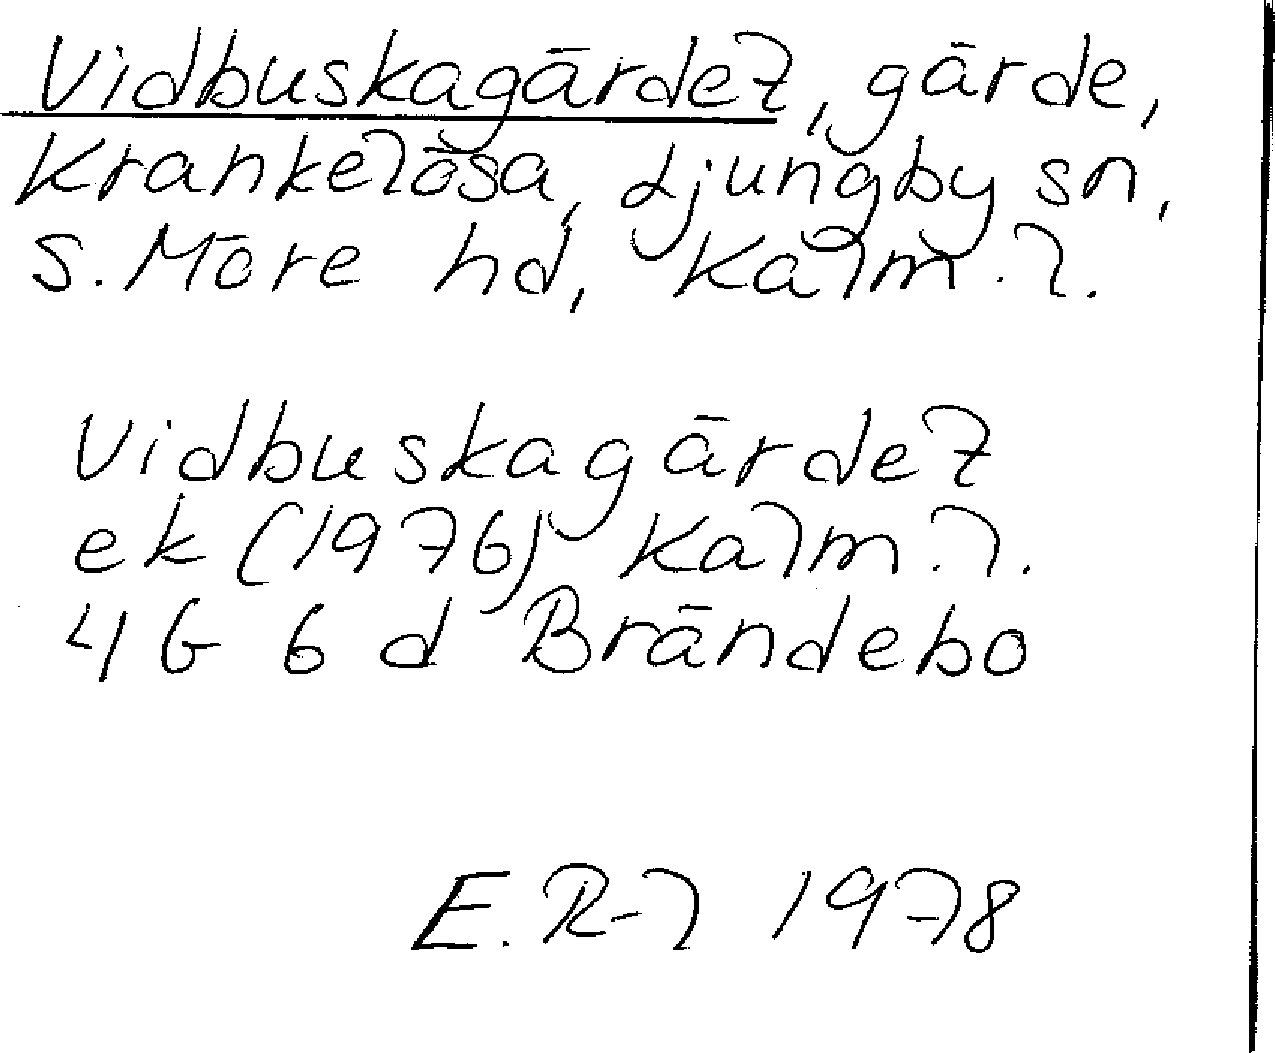 Vidbuskagärdet, gärde,
Krankelösa, Ljungby sn,
S. Möre hd, Kalm. l.
Vidbuskagärdet
ek (1976) Kalm. l.
4 G 6 d Brändebo
E. R-l 1978